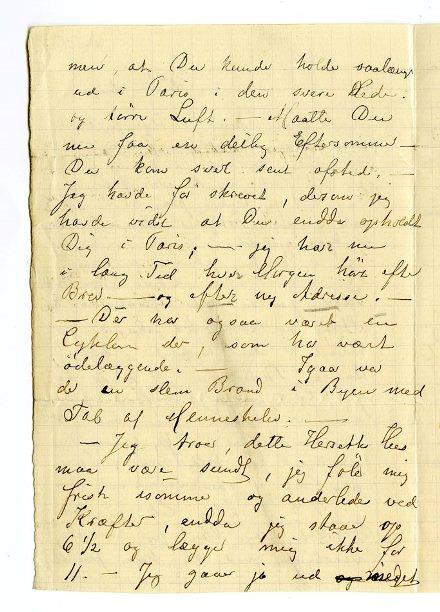 men, at Du kunde holde saalænge
ud i Paris i den svere Hede
og tørre Luft. — Maatte Du
nu faa en deilig Eftersommer —
Du kom svært sent afsted. —
Jeg havde før skrevet, dersom jeg
havde vidst at Du endda opholdt
Dig i Paris, — jeg har nu
i lang Tid hver Morgen hørt efter
Brev — og efter ny Adresse. —
— Der har ogsaa været en
Cyklon der, som har vært
ødelæggende. — Igaar va
de en slem Brand i Byen med
Tab af Menneskeliv. —
— Jeg troer, dette
maa være sundt, jeg føle mig
frisk isomme og anderlede ved
Kræfter, endda jeg staar op
6 1/2 og lægge mig ikke før
11. — Jeg gaar jo ud og meget